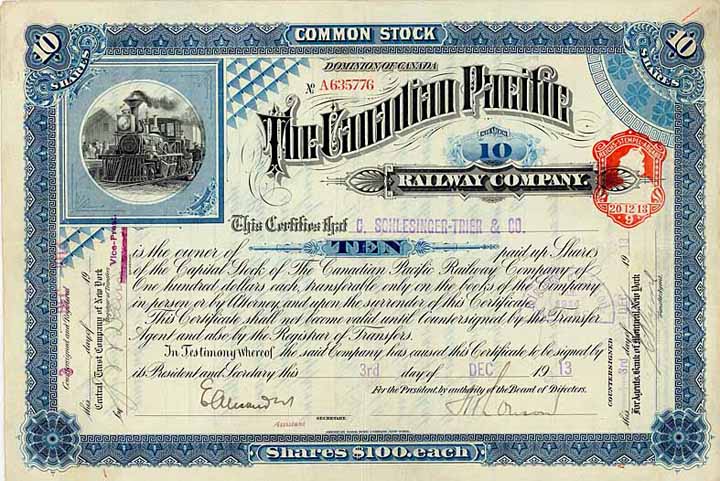 COMMON STOCK
10 SHARES
10 SHARES
DOMINION OF CANADA
No A635776
The Canadian Pacific
SHARES
10
RAILWAY COMPANY.
REICHS-STEMPEL-ABGABE
20 12 13
9
This Certifies that C. SCHLESINGER-TRIER & CO.
is the owner of TEN paid up Shares
of the Capital Stock of The Canadian Pacific Railway Company of
One hundred dollars each, transferable only on the books of the Company
in person or by Attorney, and upon the surrender of this Certificate.
This Certificate shall not become valid until Countersigned by the Transfer
Agent and also by the Registrar of Transfers.
In Testimony Whereof the said Company has caused this Certificate to be signed by
its President and Secretary this 3rd day of DEC 1913
For the President, by authority of the Board of Directors.
SECRETARY.
Assistant
Countersigned and Registered
this day of 19
Central Trust Company of New York
by
Vice-Prest.
COUNTERSIGNED
this 3rd day of DEC 19 13
For Agents, Bank of Montreal, New York
Shares $100. each